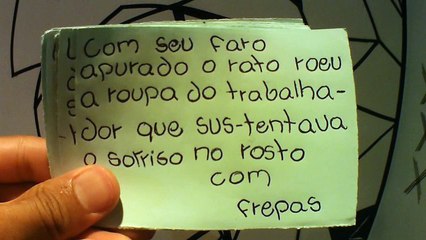 Com seu faro
apurado o rato roeu
a roupa do trabalha-
dor que sus-tentava
o sorriso no rosto
com
frepas